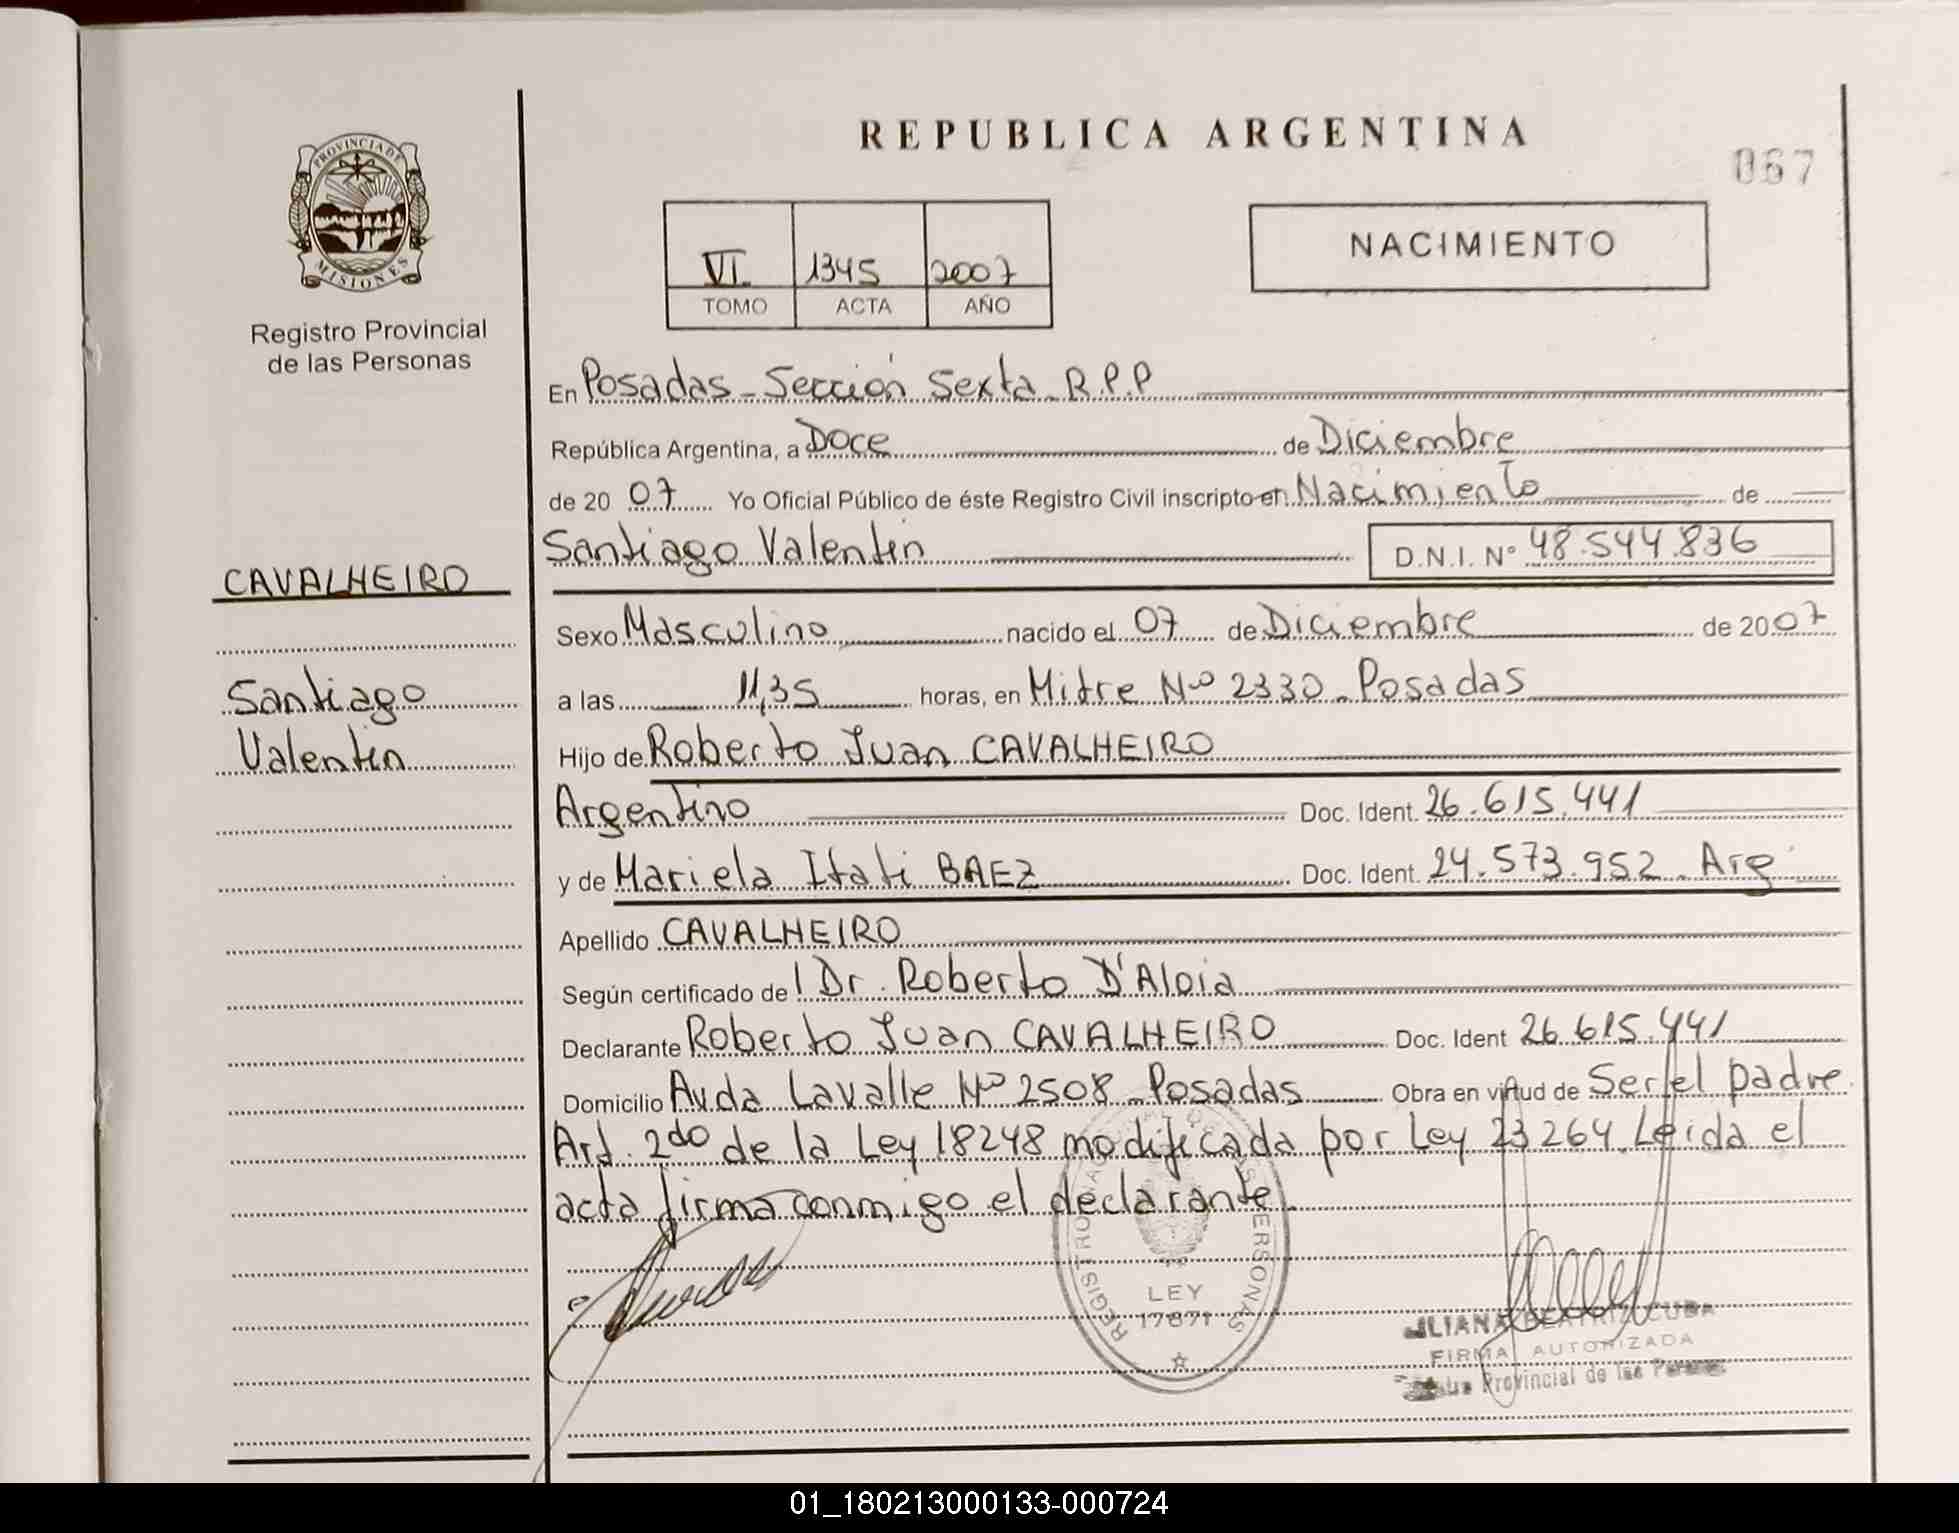 REPUBLICA ARGENTINA
067
PROVINCIA DE
MISIONES
Registro Provincial
de las Personas
VI 1345 2007
TOMO ACTA AÑO
NACIMIENTO
En Posadas - Sección Sexta - R.P.P
República Argentina, a Doce de Diciembre
de 2007 Yo Oficial Público de éste Registro Civil inscripto en Nacimiento de
Santiago Valentin D.N.I. Nº 48.544.836
CAVALHEIRO
Santiago
Valentin
Sexo Masculino nacido el 07 de Diciembre de 2007
a las 11,35 horas, en Mitre Nº 2330 - Posadas
Hijo de Roberto Juan CAVALHEIRO
Argentino Doc. Ident. 26.615.441
y de Mariela Itati BAEZ Doc. Ident. 24.573.952 - Arg
Apellido CAVALHEIRO
Según certificado de l Dr. Roberto D'Aloia
Declarante Roberto Juan CAVALHEIRO Doc. Ident 26.615.441
Domicilio Avda Lavalle Nº 2508 - Posadas Obra en virtud de Ser el padre
Art. 2do de la Ley 18248 modificada por Ley 23264. Leida el
acta firma conmigo el declarante.
LEY
17671
BEATRIZ CUBA
FIRMA AUTORIZADA
Provincial de las
01_180213000133-000724